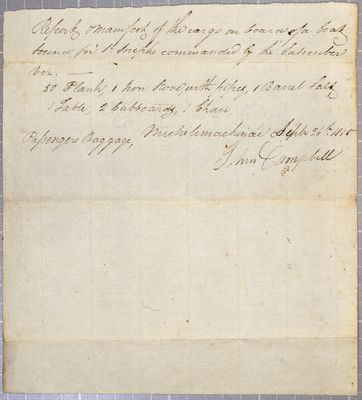 Report & manifest of the cargo on board of a boat
bound for St Josephs commanded by the Subscriber
viz.
50 Plank, 1 Iron Stove with pipes, 1 Barrel Salt
1 Table, 2 Cubboards, 1 Chair
Passengers Baggage,
Michilimackinac Septr 26th
John Campbell